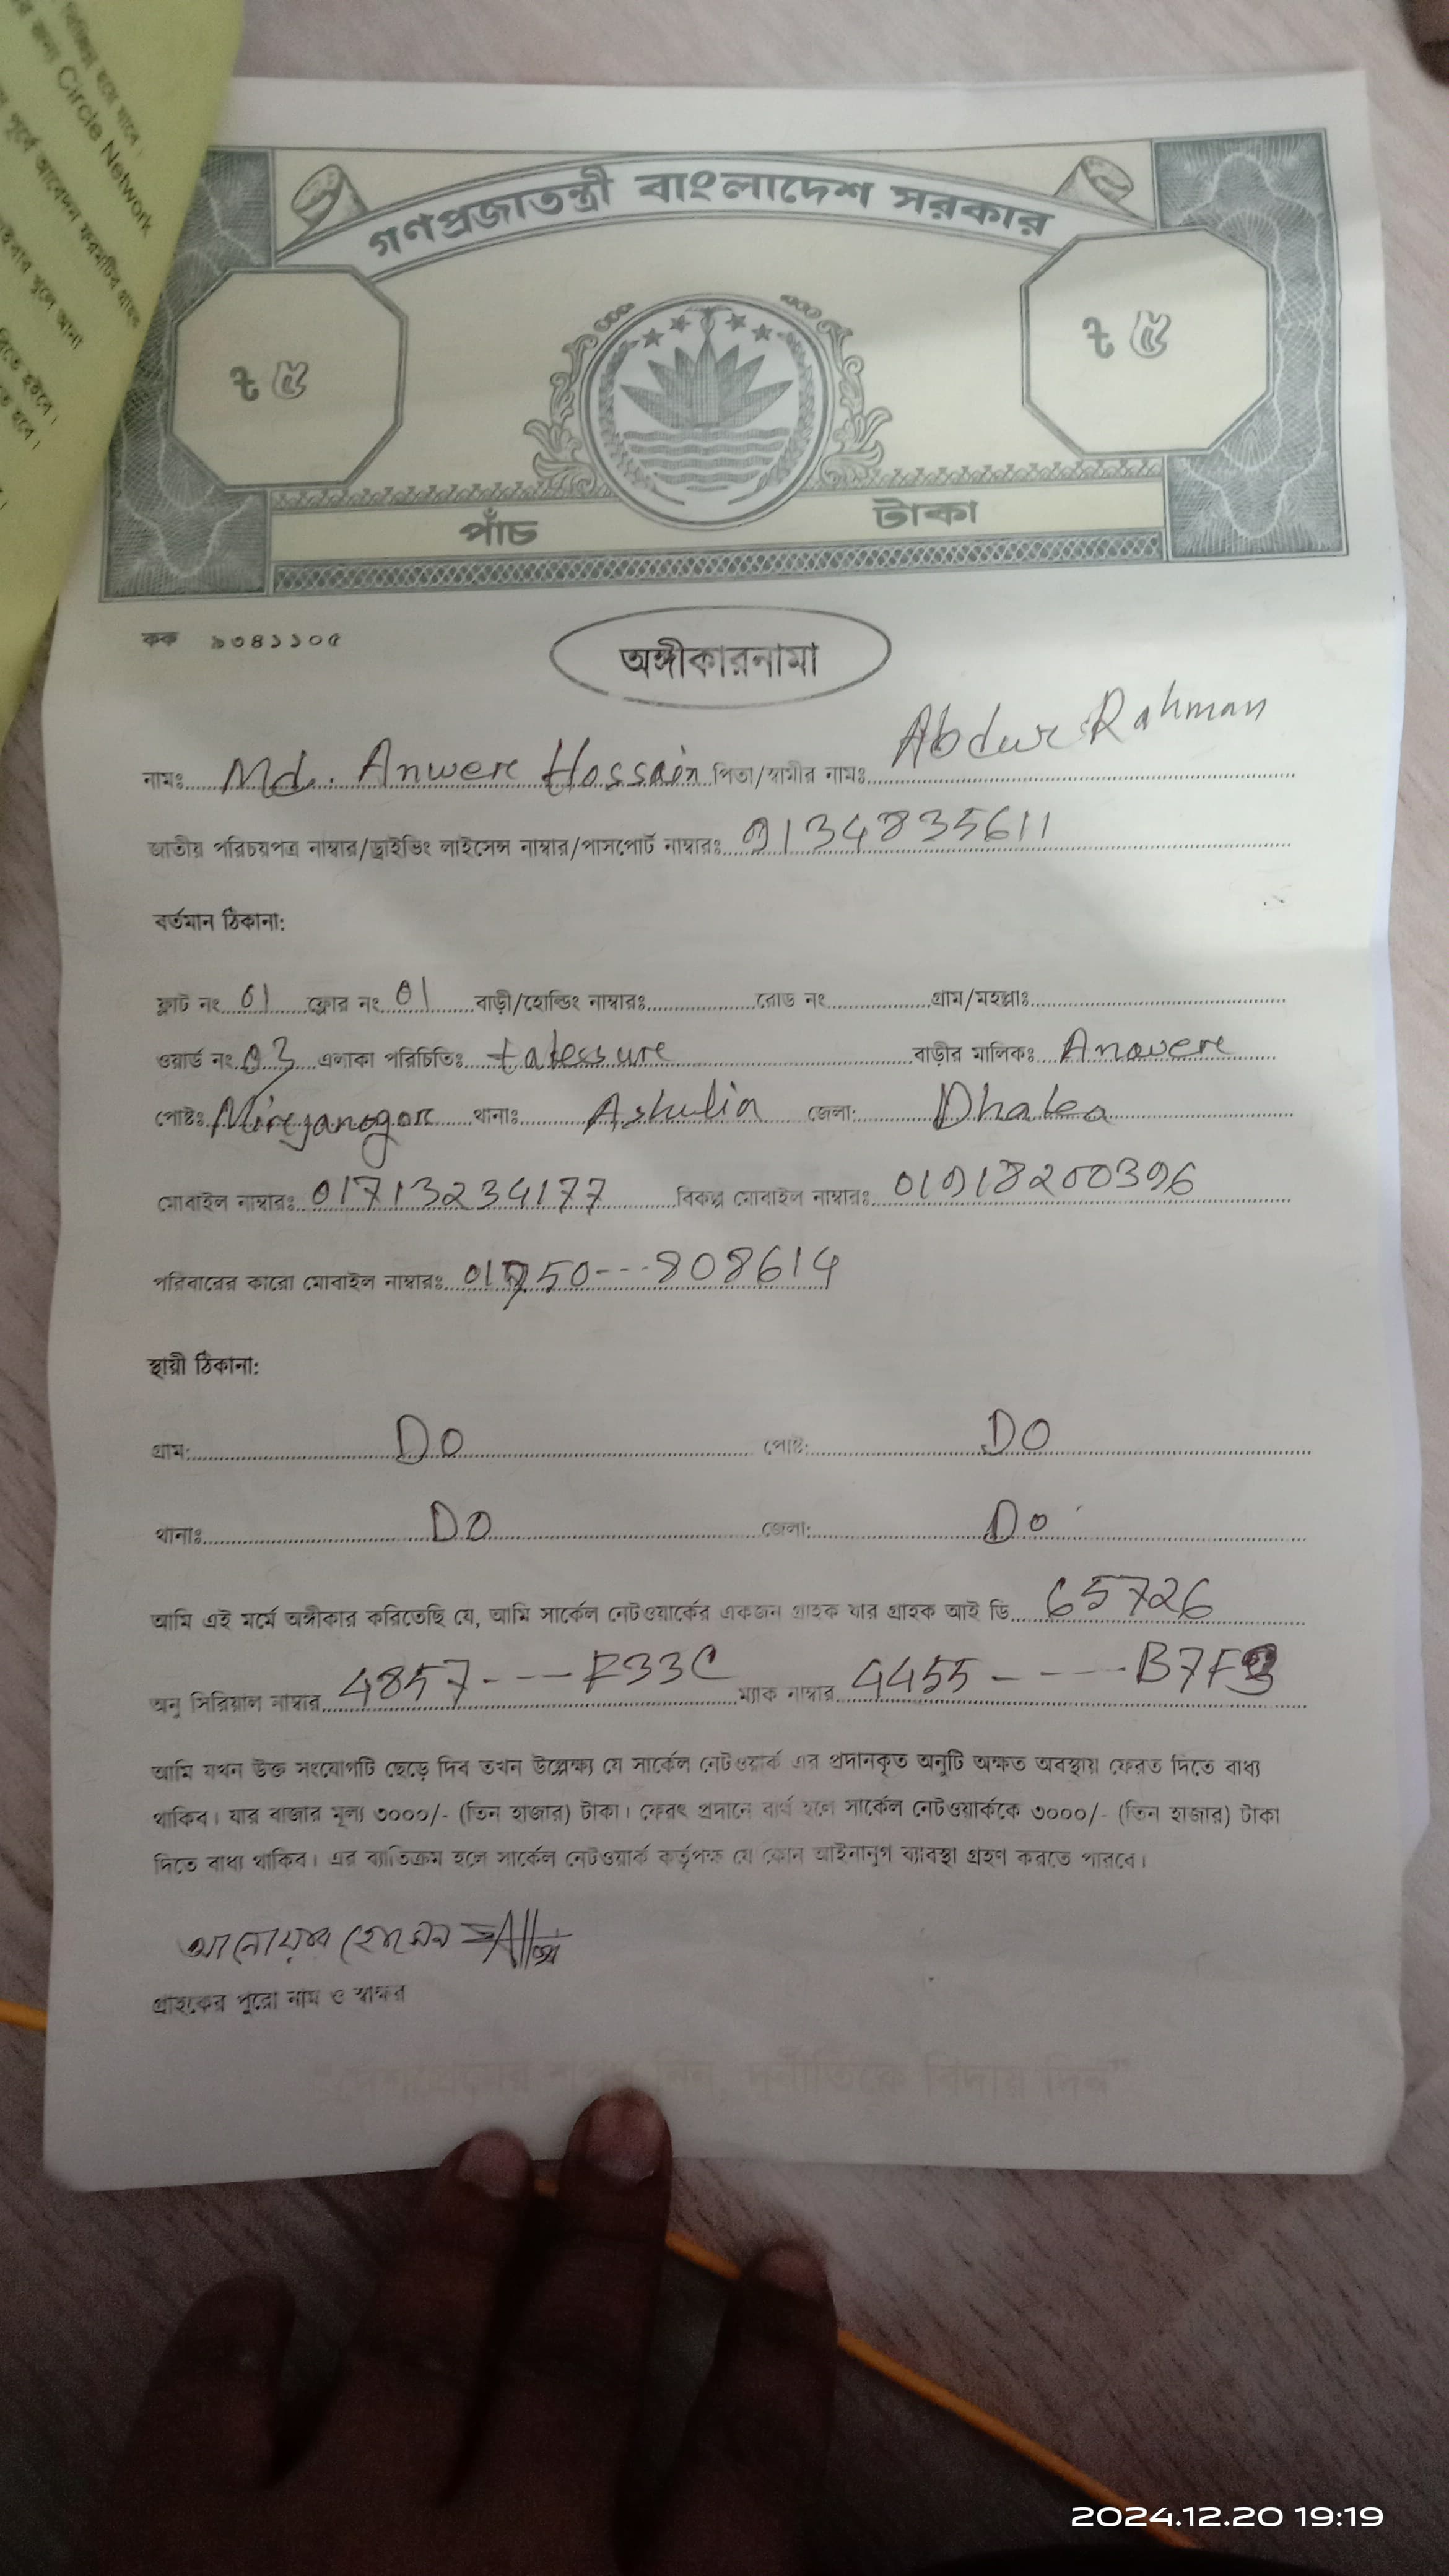 Circle Network
গণপ্রজাতন্ত্রী বাংলাদেশ সরকার
৳ ৫ ৳ ৫
পাঁচ টাকা
কক ৯৩৪১১০৫
অঙ্গীকারনামা
নামঃ Md. Anwere Hossain পিতা/স্বামীর নামঃ Abdur Rahman
জাতীয় পরিচয়পত্র নাম্বার/ড্রাইভিং লাইসেন্স নাম্বার/পাসপোর্ট নাম্বারঃ 9134835611
বর্তমান ঠিকানা:
ফ্লাট নং 01 ফ্লোর নং 01 বাড়ী/হোল্ডিং নাম্বারঃ রোড নং গ্রাম/মহল্লাঃ
ওয়ার্ড নং 03 এলাকা পরিচিতিঃ বাড়ীর মালিকঃ Anowere
পোষ্টঃ Mirejanogor থানাঃ Ashulia জেলা: Dhaka
মোবাইল নাম্বারঃ 01713234177 বিকল্প মোবাইল নাম্বারঃ 01918200396
পরিবারের কারো মোবাইল নাম্বারঃ 01750---808614
স্থায়ী ঠিকানা:
গ্রাম: DO পোষ্ট: DO
থানাঃ DO জেলা: Do
আমি এই মর্মে অঙ্গীকার করিতেছি যে, আমি সার্কেল নেটওয়ার্কের একজন গ্রাহক যার গ্রাহক আই ডি 65726
অনু সিরিয়াল নাম্বার 4857---F33C ম্যাক নাম্বার 4455----B7F3
আমি যখন উক্ত সংযোগটি ছেড়ে দিব তখন উল্লেক্ষ্য যে সার্কেল নেটওয়ার্ক এর প্রদানকৃত অনুটি অক্ষত অবস্থায় ফেরত দিতে বাধ্য
থাকিব। যার বাজার মূল্য ৩০০০/- (তিন হাজার) টাকা। ফেরৎ প্রদানে ব্যর্থ হলে সার্কেল নেটওয়ার্ককে ৩০০০/- (তিন হাজার) টাকা
দিতে বাধ্য থাকিব। এর ব্যাতিক্রম হলে সার্কেল নেটওয়ার্ক কর্তৃপক্ষ যে কোন আইনানুগ ব্যাবস্থা গ্রহণ করতে পারবে।
আনোয়ার হোসেন
গ্রাহকের পুরো নাম ও স্বাক্ষর
"দেশপ্রেমের শপথ নিন, দুর্নীতিকে বিদায় দিন"
2024.12.20 19:19